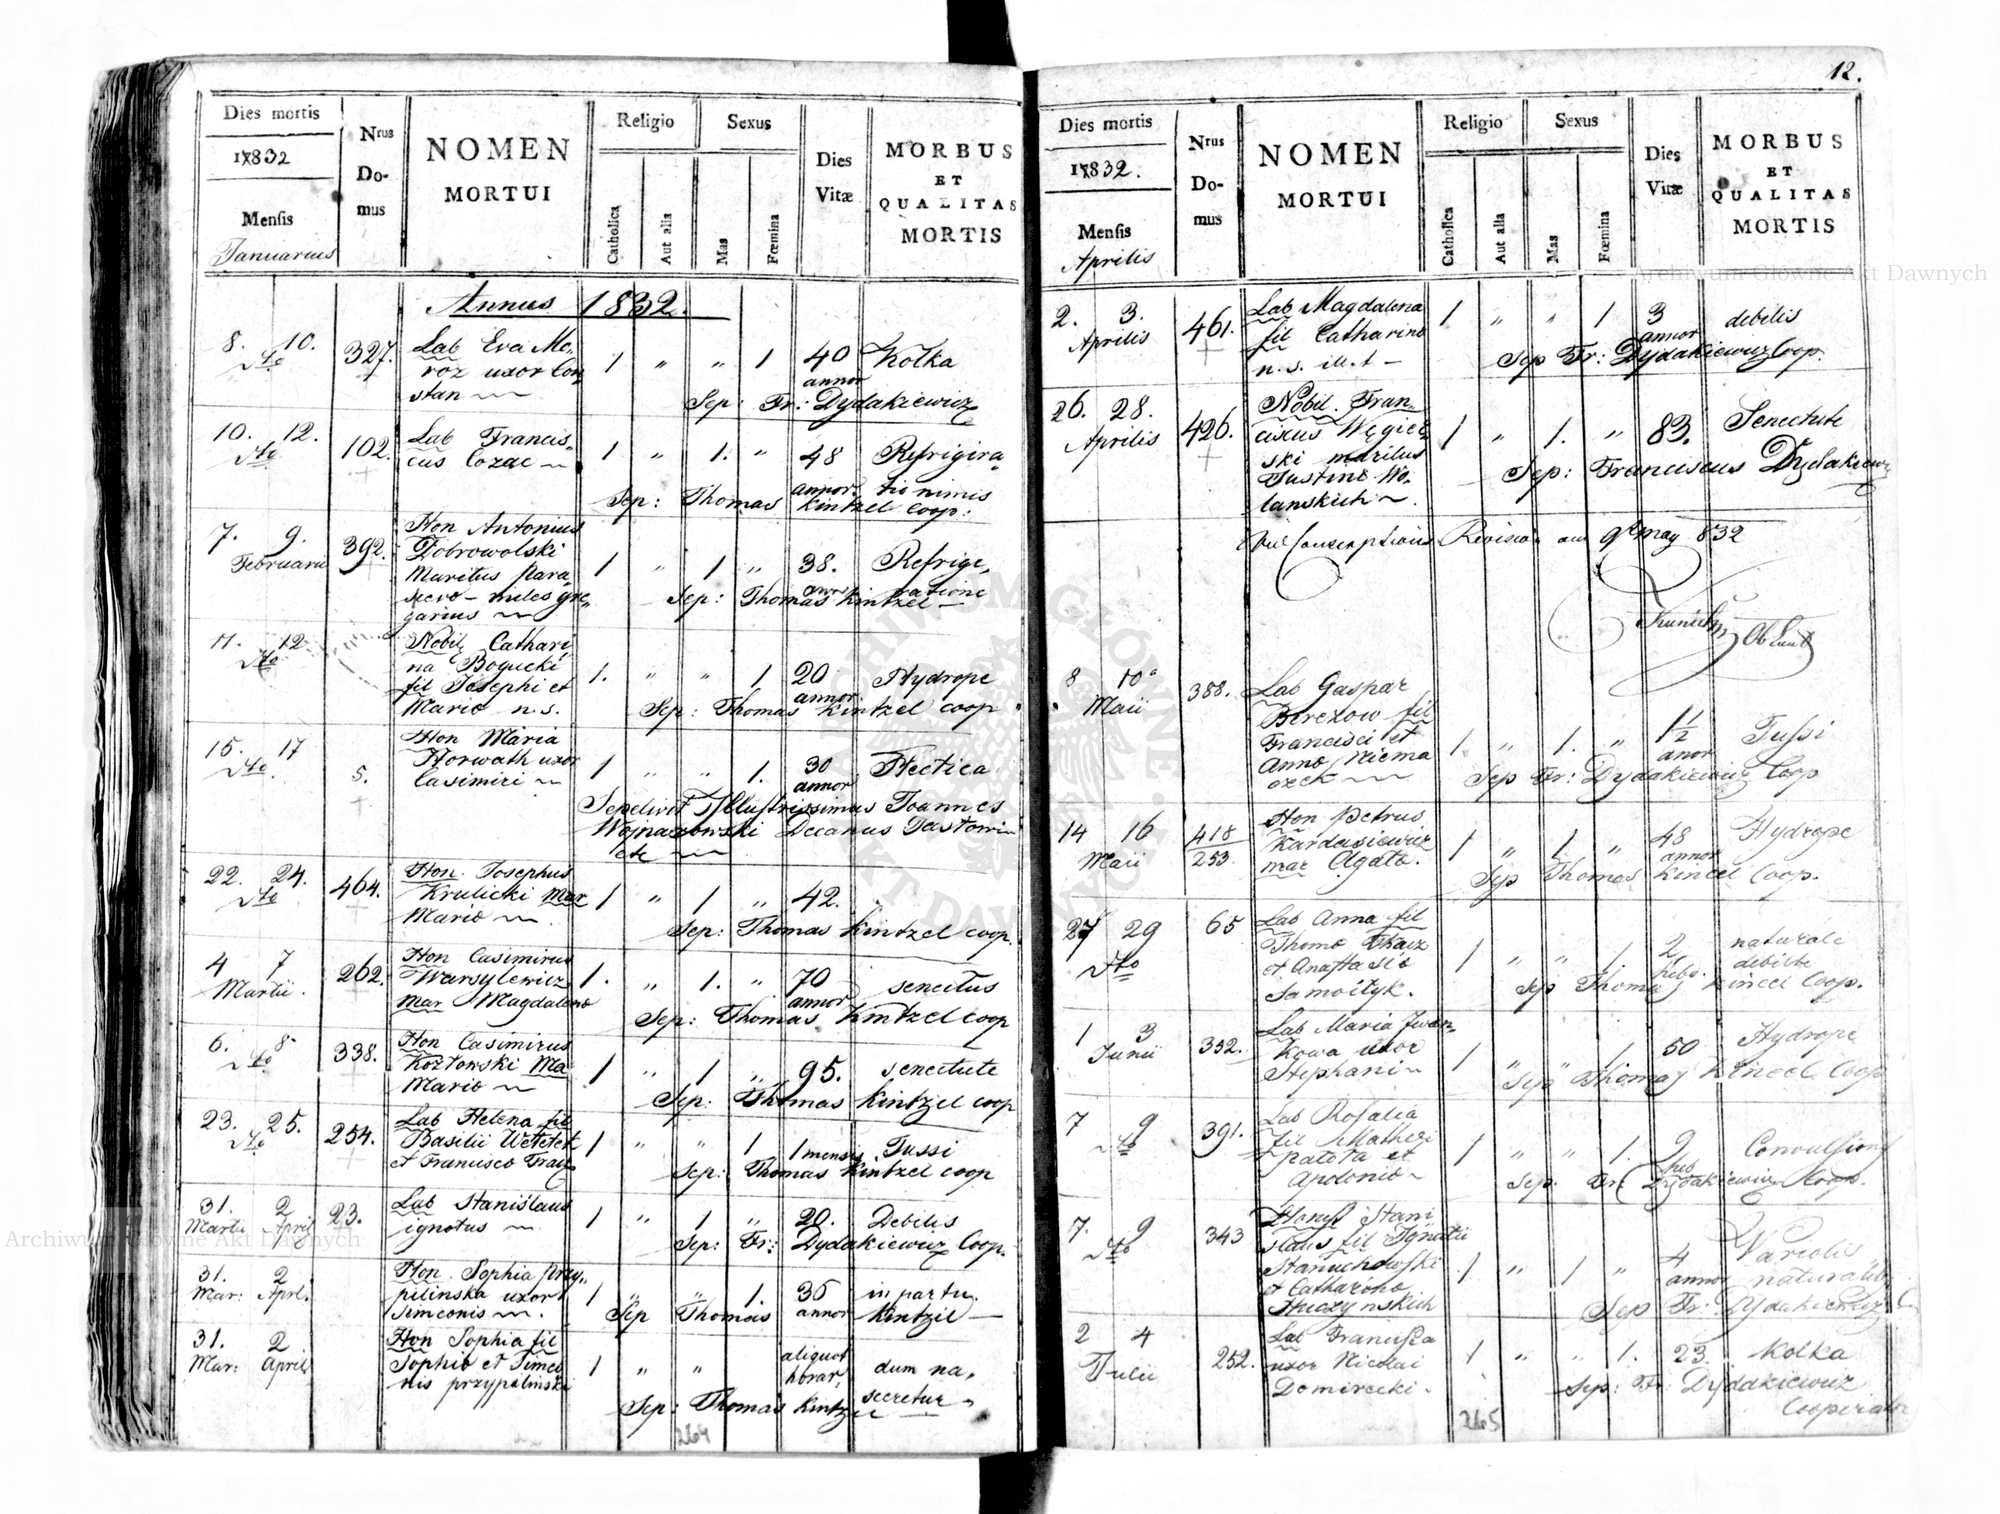 Dies mortis
1832
Mensis
Januarius
Nrus
Do-
mus
NOMEN
MORTUI
Religio
Catholica
Aut alia
Sexus
Mas
Fœmina
Dies
Vitæ
MORBUS
ET
QUALITAS
MORTIS
Annus 1832.
8. 10.
dto
327.
Lab Eva Mo,,
roz uxor Con
stan
1 " " 1 40
annor
Kolka
Sep: Fr: Dydakiewicz
10. 12.
dto
102.
Lab Francis,,
cus Cozac
1 " 1. " 48
annor.
Refrigira,,
tio nimis
Sep: Thomas Kintzel Coop:
7. 9.
Februarii
392.
Hon Antonius
Dobrowolski
Maritus Para,,
scevo - miles gre,,
garius
1 " 1 " 38.
annor
Refrige,,
ratione
Sep: Thomas Kintzel
11. 12
dto
Nobil Cathari,,
na Bogucki
fil Josephi et
Mario n. s.
1. " " 1 20
annor
Hydrope
Sep: Thomas Kintzel coop
15. 17
dto
5.
Hon Maria
Horwath uxor
Casimiri
1 " " 1. 30
annor
Hectica
Sepelivit Illustrissimus Joannes
Decanus
etc
22. 24.
dto
464.
Hon. Josephus
Krulicki Mar
Mario
1 " 1 " 42.
Sep: Thomas Kintzel coop.
4 7
Martii.
262.
Hon Casimirus
Warsylewicz
mar Magdaleno
1. " 1. " 70
annor
senectus
Sep: Thomas Kintzel coop
6. 8
dto
338.
Hon Casimirus
Kozłowski Ma
Mario
1 " 1 " 95.
senectute
Sep: Thomas Kintzel coop
23. 25.
dto
254.
Lab Helena fil
Basilii
et Francisco
1 " " 1 1 mensis
Tussi
Sep: Thomas Kintzel coop
31. 2
Martii April
23.
Lab Stanislaus
ignotus
1 " 1 " 20.
Debilis
Sep: Fr: Dydakiewicz Coop.
31. 2
Mar: Aprl.
Hon. Sophia Przy,,
pilinska uxor
Simeonis
1 " " 1. 36
annor
in partu.
Sep Thomas Kintzil
31. 2
Mar: April
Hon Sophia fil
Sophio et Simeo
nis przypilinski
1 " "
aliquot
horar,
dum na,,
scretur
Sep: Thomas Kintzel
264
12.
Dies mortis
1832.
Mensis
Aprilis
Nrus
Do-
mus
NOMEN
MORTUI
Religio
Catholica
Aut alia
Sexus
Mas
Fœmina
Dies
Vitæ
MORBUS
ET
QUALITAS
MORTIS
2. 3.
Aprilis
461.
Lab Magdalena
fil Catharino
n. s. ill. t
1 " " 1 3
annor
debilis
Sep Fr: Dydakiewicz Coop.
26. 28.
Aprilis
426.
Nobil. Fran,,
ciscus Węgier,,
ski maritus
Justino Wo,,
lanskich
1 " 1. " 83.
Senectute
Sep: Franciscus Dydakiewicz
Conscriptions Revision am 9t may 832
8 10
Maii
388.
Lab Gaspar
Berezow fil
Francisci et
Anno Niema
ozek
1. " 1. " 1 1/2
anor
Tussi
Sep Fr: Dydakiewicz Coop
14 16
Maii
418
253.
Hon Petrus
Kardasiewicz
mar Agato.
1 " 1 " 48
annor
Hydrope
Sep Thomas Kincel Coop.
27 29
dto
65
Lab Anna fil
Thomo
et Anastasio
Samoityk.
1 " " 1. 2
hebd.
naturale
debilte
Sep Thomas Kincel Coop.
1 3
Junii
352.
Lab Maria Iwan,,
Kowa uxor
Stephani
1 " " 1. 50
Hydrope
Sep Thomas Kincel Coop
7 9
dto
391.
Lab Rosalia
fil Mathei
pateta et
Apolonio
1 " " 1. 2
heb
Convulsion
Sep: Fr: Dydakiewicz Coop.
7. 9
dto
343
Honest Stani
slaus fil Ignatii
Staniuchowski
et Catharino
Huczynskich
1 " 1 " 4
annor
Variolis
naturalib
Sep Fr: Dydakiewicz C
2 4
Julii
252.
Lab Franciska
uxor Nicolai
Domirecki
1 " " 1. 23.
Kolka
Sep: Fr: Dydakiewicz
Cooperator
265
Archiwum Główne Akt Dawnych
Archiwum Główne Akt Dawnych
ARCHIWUM GŁÓWNE AKT DAWNYCH